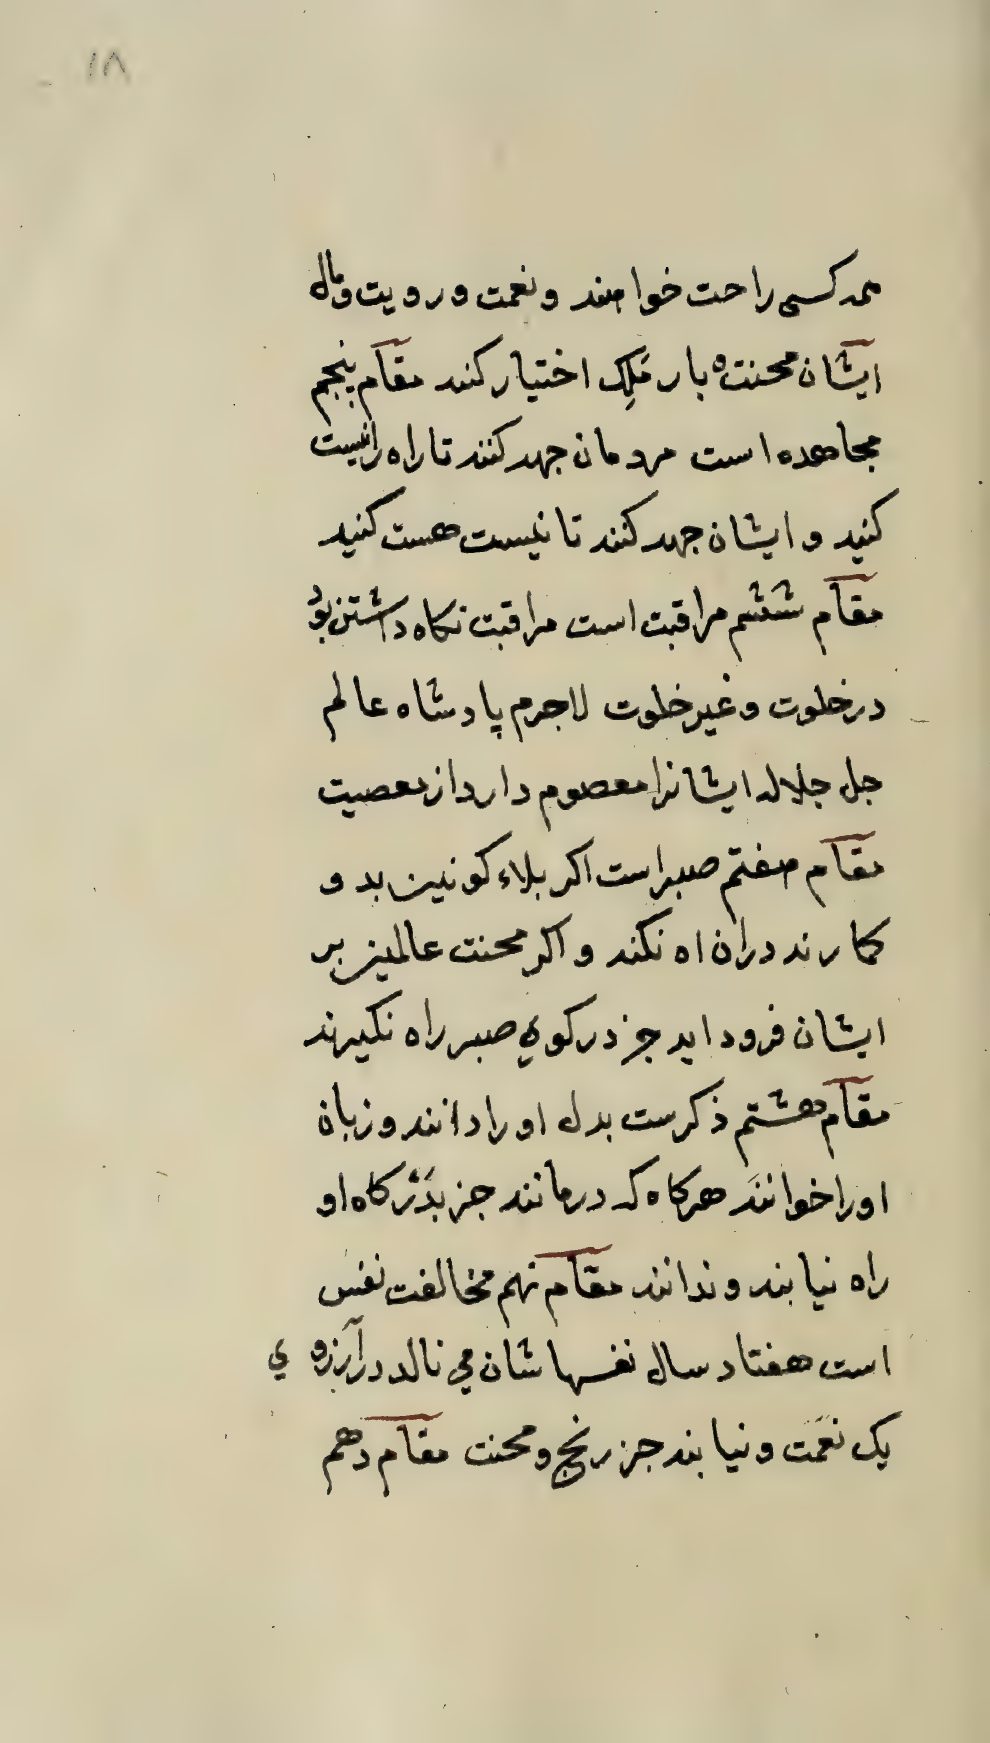 ١٨
همه كسى راحت خواهند و نعمت و رويت و مال
ايشان محنت و بار مَلِك اختيار كنند مقام پنجم
مجاهده است مردمان جهد كنند تا راه رانيست
كنيد و ايشان جهد كنند تا نيست هست كنيد
مقام ششم مراقبت است مراقبت نكاه داشتن بود
در خلوت و غير خلوت لاجرم پادشاه عالم
جل جلاله ايشانرا معصوم دارد از معصيت
مقام هفتم صبر است اكر بلاء كونين بد و
كمارند در ان اه نكند و اكر محنت عالمين بر
ايشان فرود ايد جز در كوي صبر راه نكيرند
مقام هشتم ذكرست بدل او را دانند و زبان
اورا خوانند هركاه كه درمانند جز بدركاه او
راه نيابند و ندانند مقام نهم مخالفت نفس
است هفتاد سال نفسها شان مي نالد در آرزو ي
يک نعمت و نيابند جز رنج و محنت مقام دهم